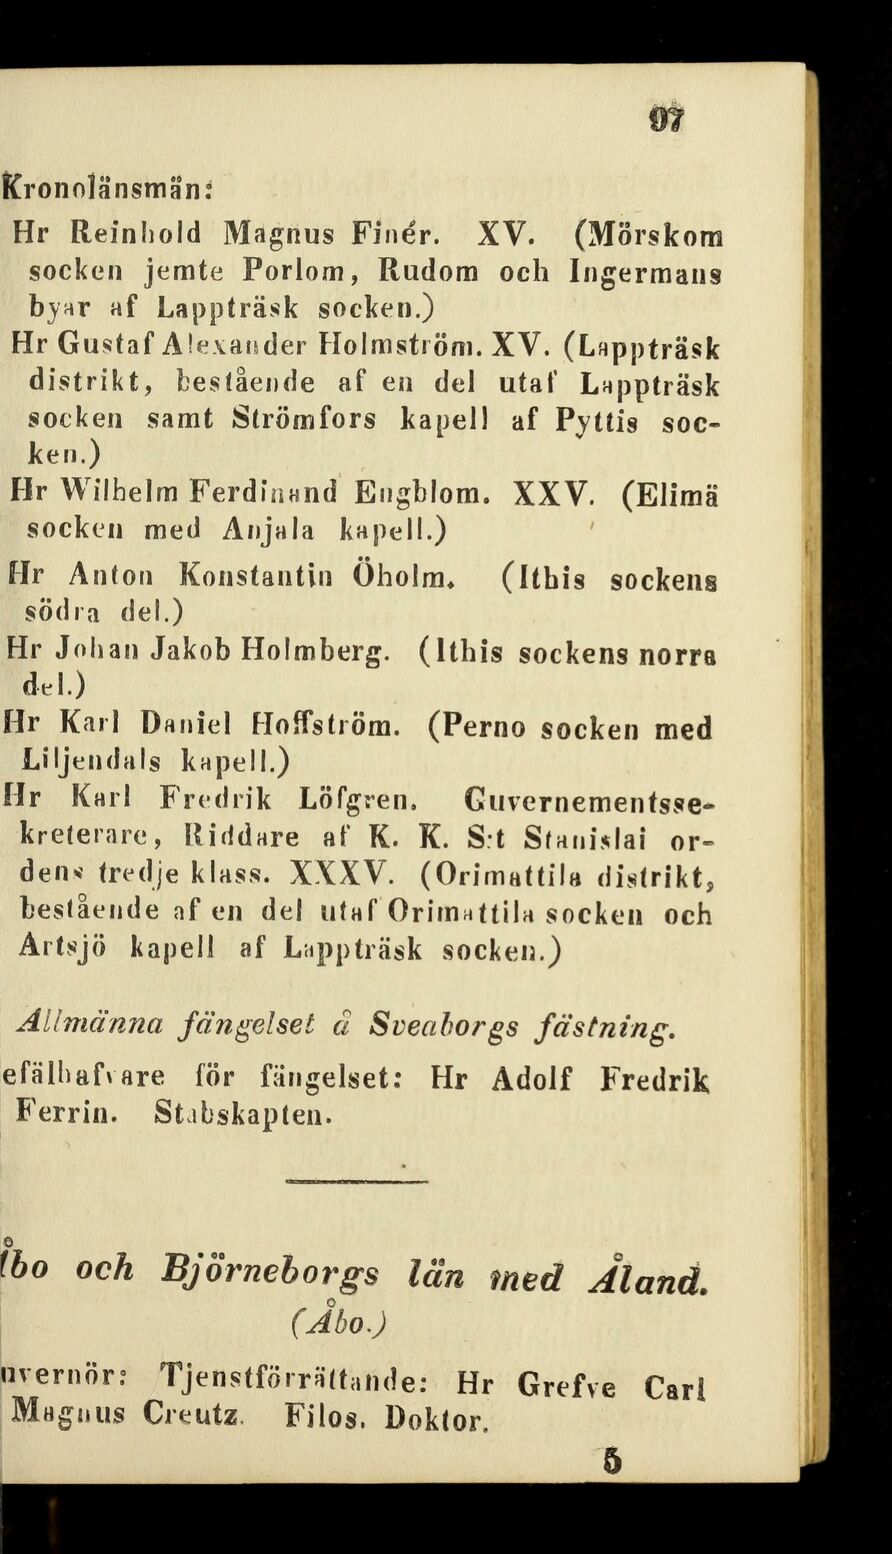 97
Kronolänsmän:
Hr Reinhold Magnus Finér. XV. (Mörskom
socken jemte Porlom, Rudom och Ingermans
byar af Lappträsk socken.)
Hr Gustaf Alexander Holmström. XV. (Lappträsk
distrikt, bestående af en del utaf Lappträsk
socken samt Strömfors kapell af Pyttis soc-
ken.)
Hr Wilhelm Ferdinand Engblom. XXV. (Elimä
socken med Anjala kapell.)
Hr Anton Konstantin Öholm. (Ithis sockens
södra del.)
Hr Johan Jakob Holmberg. (Ithis sockens norra
del.)
Hr Karl Daniel Hoffström. (Perno socken med
Liljendals kapell.)
Hr Karl Fredrik Löfgren. Guvernementsse-
kreterare, Riddare af K. K. S:t Stanislai or-
dens tredje klass. XXXV. (Orimattila distrikt,
bestående af en del utaf Orimattila socken och
Artsjö kapell af Lappträsk socken.)
Allmänna fängelset å Sveaborgs fästning.
efälhafvare för fängelset: Hr Adolf Fredrik
Ferrin. Stabskapten.
Åbo och Björneborgs län med Åland.
(Åbo.)
uvernör: Tjenstförrättande: Hr Grefve Carl
Magnus Creutz. Filos. Doktor.
5